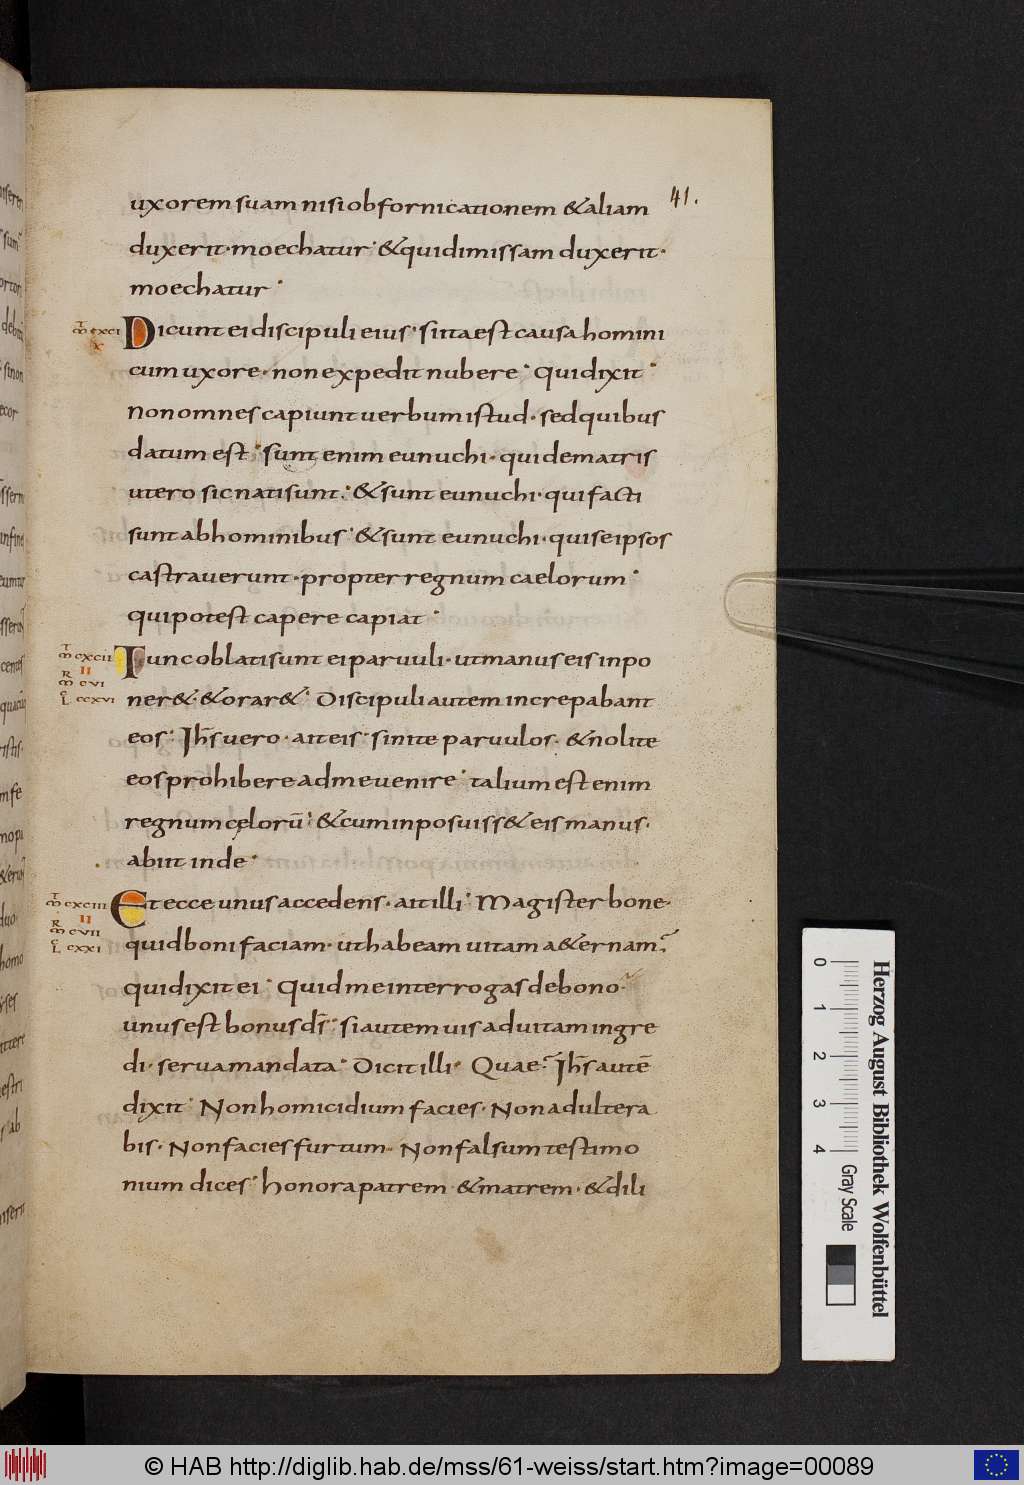 41.
uxorem suam nisi ob fornicationem & aliam
duxerit· moechatur· & qui dimissam duxerit·
moechatur·
T
M CXCI
X
Dicunt ei discipuli eius· si ita est causa homini
cum uxore· non expedit nubere· Qui dixit·
Non omnes capiunt uerbum istud· sed quibus
datum est· sunt enim eunuchi· qui de matris
utero sic nati sunt· & sunt eunuchi· qui facti
sunt ab hominibus· & sunt eunuchi· qui se ipsos
castrauerunt· propter regnum caelorum·
qui potest capere capiat·
T
M CXCII
II
R
M CVI
C
L CCXVI
Tunc oblati sunt ei paruuli· ut manus eis inpo
ner&· & orar&· Discipuli autem increpabant
eos· Ihs̄ uero· ait eis· sinite paruulos· & nolite
eos prohibere ad me uenire· talium est enim
regnum cęlorū· & cum inposuiss& eis manus·
abiit inde·
T
M CXCIII
II
R
M CVII
C
L CCXXI
Et ecce unus accedens· ait illi· Magister bone·
quid boni faciam· ut habeam uitam a&ernam?
qui dixit ei· Quid me interrogas de bono·
unus est bonus ds̄· si autem uis ad uitam ingre
di· serua mandata· Dicit illi· Quae? Ihs̄ autē
dixit· Non homicidium facies· Non adultera
bis· Non facies furtum· Non falsum testimo
nium dices· honora patrem & matrem· & dili
0 1 2 3 4
Gray Scale
Herzog August Bibliothek Wolfenbüttel
© HAB http://diglib.hab.de/mss/61-weiss/start.htm?image=00089